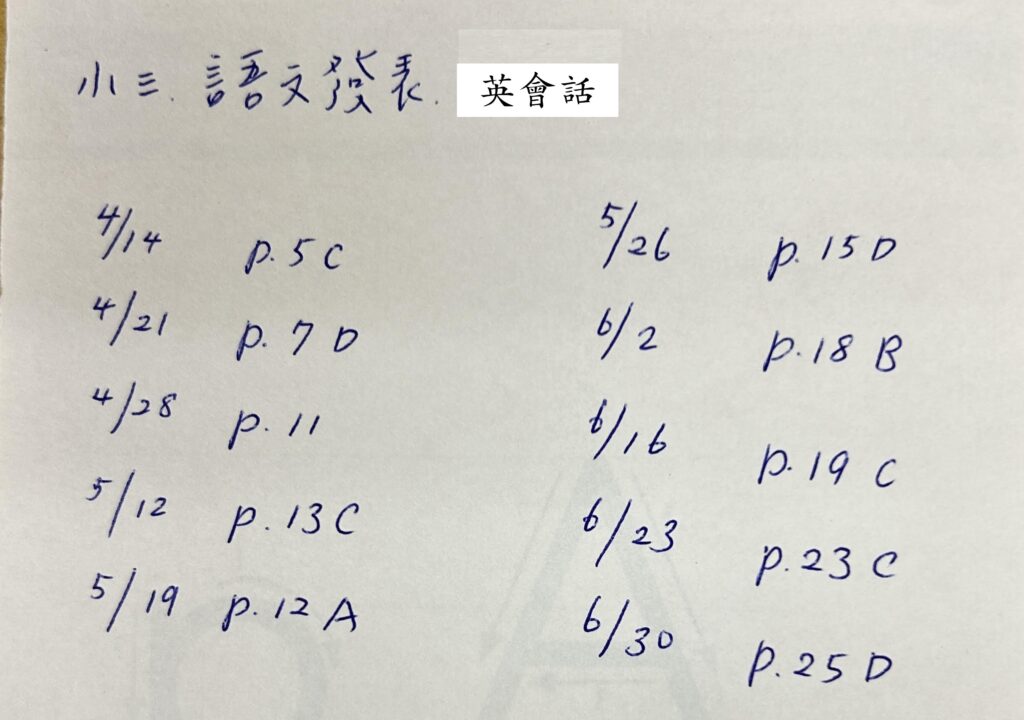 小三. 語文發表. 英會話
4/14 p.5 C
4/21 p.7 D
4/28 p.11
5/12 p.13 C
5/19 p.12 A
5/26 p.15 D
6/2 p.18 B
6/16 p.19 C
6/23 p.23 C
6/30 p.25 D